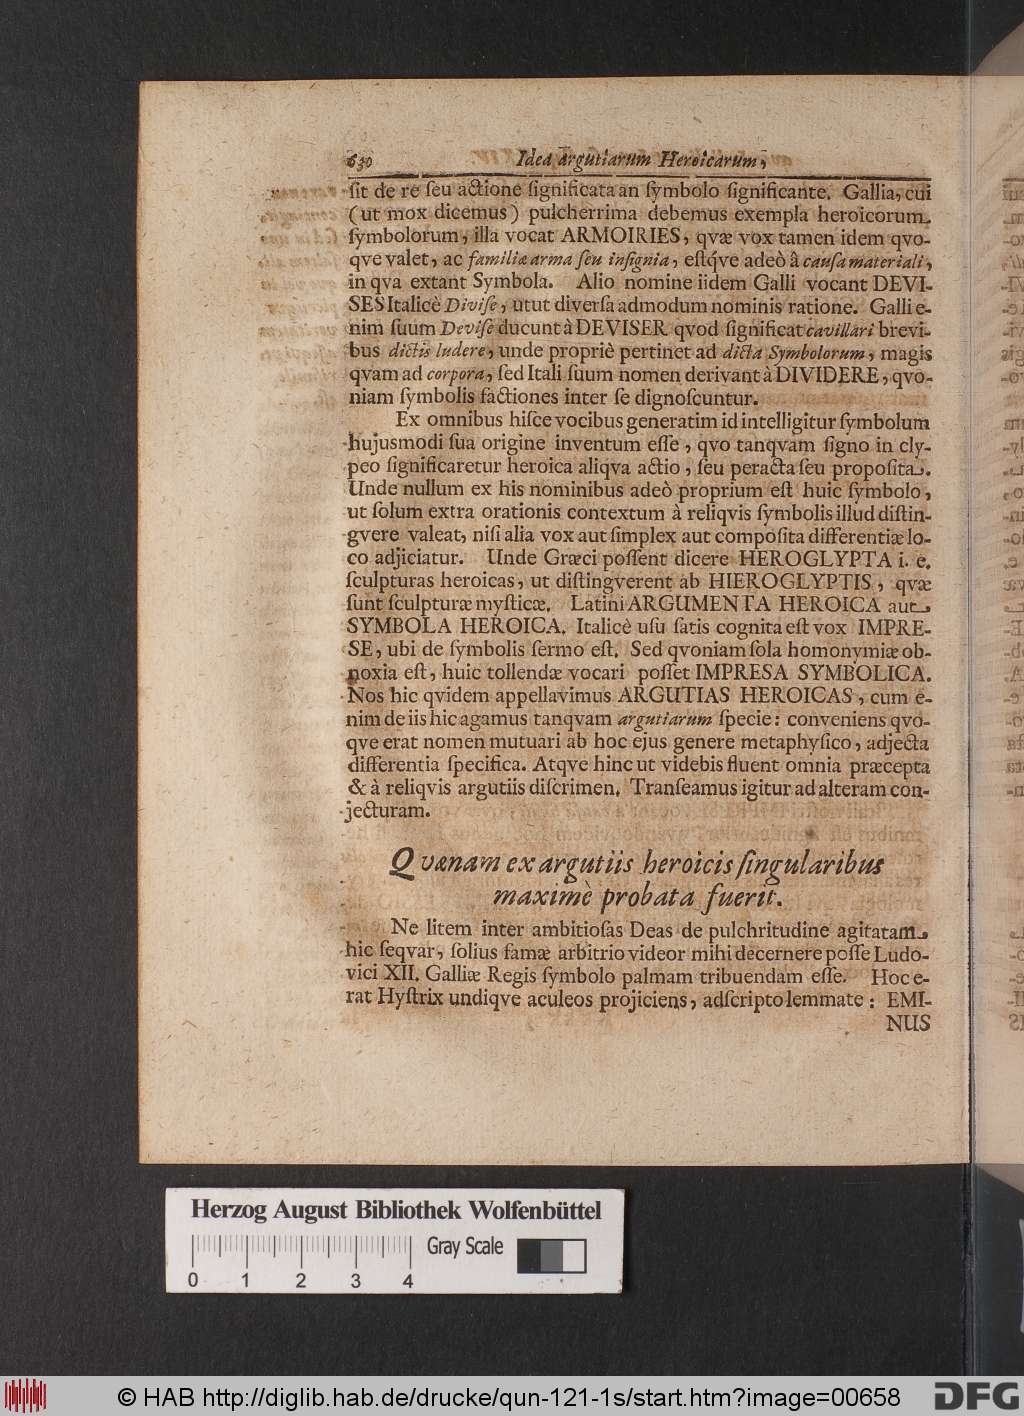 630 Idea argutiarum Heroicarum,
ſit de re ſeu actione ſignificata an ſymbolo ſignificante. Gallia, cui
(ut mox dicemus) pulcherrima debemus exempla heroicorum
ſymbolorum, illa vocat ARMOIRIES, qvæ vox tamen idem qvo-
qve valet, ac familiæ arma ſeu inſignia, eſtq́ve adeò â cauſa materiali,
in qva extant Symbola. Alio nomine iidem Galli vocant DEVI-
SES Italicè Diviſe, utut diverſa admodum nominis ratione. Galli e-
nim ſuum Deviſe ducunt à DEVISER qvod ſignificat cavillari brevi-
bus dictis ludere, unde propriè pertinet ad dicta Symbolorum, magis
qvam ad corpora, ſed Itali ſuum nomen derivant à DIVIDERE, qvo-
niam ſymbolis factiones inter ſe dignoſcuntur.
Ex omnibus hiſce vocibus generatim id intelligitur ſymbolum
hujusmodi ſua origine inventum eſſe, qvo tanqvam ſigno in cly-
peo ſignificaretur heroica aliqva actio, ſeu peracta ſeu propoſita.
Unde nullum ex his nominibus adeò proprium eſt huic ſymbolo,
ut ſolum extra orationis contextum à reliqvis ſymbolis illud diſtin-
gvere valeat, niſi alia vox aut ſimplex aut compoſita differentiæ lo-
co adjiciatur. Unde Græci poſſent dicere HEROGLYPTA i. e.
ſculpturas heroicas, ut diſtingverent ab HIEROGLYPTIS, qvæ
ſunt ſculpturæ myſticæ. Latini ARGUMENTA HEROICA aut
SYMBOLA HEROICA. Italicè uſu ſatis cognita eſt vox IMPRE-
SE, ubi de ſymbolis ſermo eſt. Sed qvoniam ſola homonymiæ ob-
noxia eſt, huic tollendæ vocari poſſet IMPRESA SYMBOLICA.
Nos hic qvidem appellavimus ARGUTIAS HEROICAS, cum e-
nim de iis hic agamus tanqvam argutiarum ſpecie: conveniens qvo-
qve erat nomen mutuari ab hoc ejus genere metaphyſico, adjecta
differentia ſpecifica. Atqve hinc ut videbis fluent omnia præcepta
& à reliqvis argutiis diſcrimen. Tranſeamus igitur ad alteram con-
jecturam.
Qvænam ex argutiis heroicis ſingularibus
maximè probata fuerit.
Ne litem inter ambitioſas Deas de pulchritudine agitatam
hic ſeqvar, ſolius famæ arbitrio videor mihi decernere poſſe Ludo-
vici XII. Galliæ Regis ſymbolo palmam tribuendam eſſe. Hoc e-
rat Hyſtrix undiqve aculeos projiciens, adſcripto lemmate: EMI-
NUS
Herzog August Bibliothek Wolfenbüttel
Gray Scale
0 1 2 3 4
© HAB http://diglib.hab.de/drucke/qun-121-1s/start.htm?image=00658
DFG